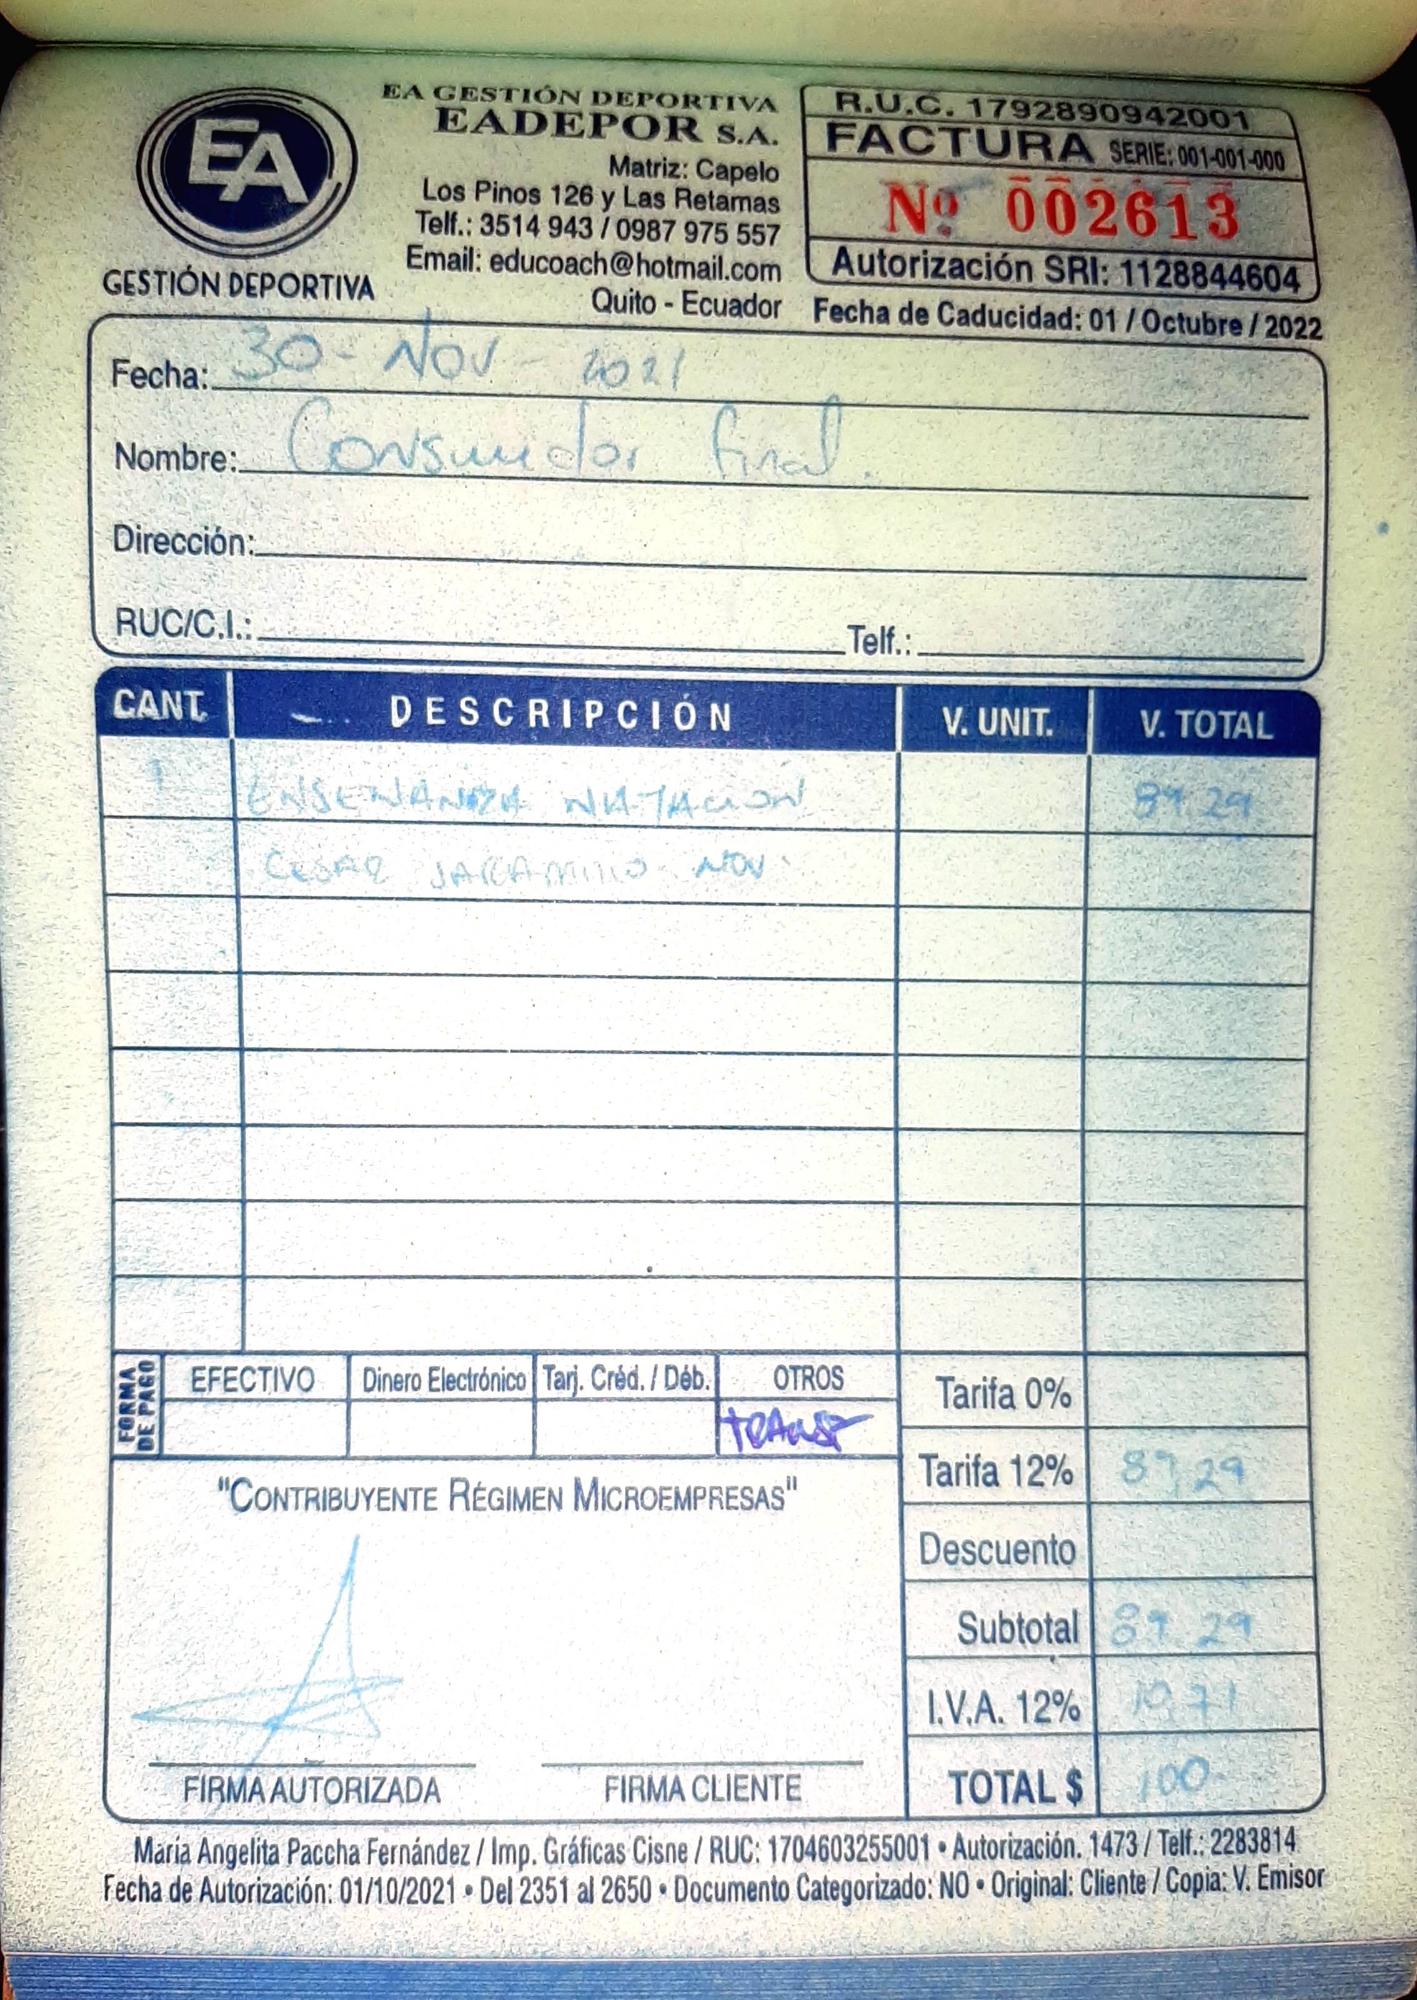 EA
GESTIÓN DEPORTIVA
EA GESTIÓN DEPORTIVA
EADEPOR S.A.
Matriz: Capelo
Los Pinos 126 y Las Retamas
Telf.: 3514 943 / 0987 975 557
Email: educoach@hotmail.com
Quito - Ecuador
R.U.C. 1792890942001
FACTURA SERIE: 001-001-000
Nº 002613
Autorización SRI: 1128844604
Fecha de Caducidad: 01 / Octubre / 2022
Fecha: 30 - Nov - 2021
Nombre: Consumidor final.
Dirección:
RUC/C.I.: Telf.:
CANT. DESCRIPCIÓN V. UNIT. V. TOTAL
1 ENSENANZA NATACION 89.29
CESAR JARAMILLO - NOV.
FORMA DE PAGO
EFECTIVO Dinero Electrónico Tarj. Créd. / Déb. OTROS
TRANSF
Tarifa 0%
Tarifa 12% 89.29
Descuento
Subtotal 89.29
I.V.A. 12% 10.71
TOTAL $ 100-
"CONTRIBUYENTE RÉGIMEN MICROEMPRESAS"
FIRMA AUTORIZADA FIRMA CLIENTE
María Angelita Paccha Fernández / Imp. Gráficas Cisne / RUC: 1704603255001 • Autorización. 1473 / Telf.: 2283814
Fecha de Autorización: 01/10/2021 • Del 2351 al 2650 • Documento Categorizado: NO • Original: Cliente / Copia: V. Emisor